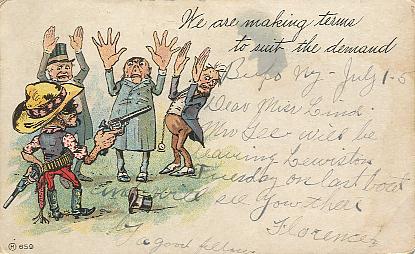 We are making terms
to suit the demand
Bufo Ny - July 1-5
Dear Miss Lind -
will be
leaving Lewiston
Tuesday on last boat
will see you then
Florence
a good fellow
659